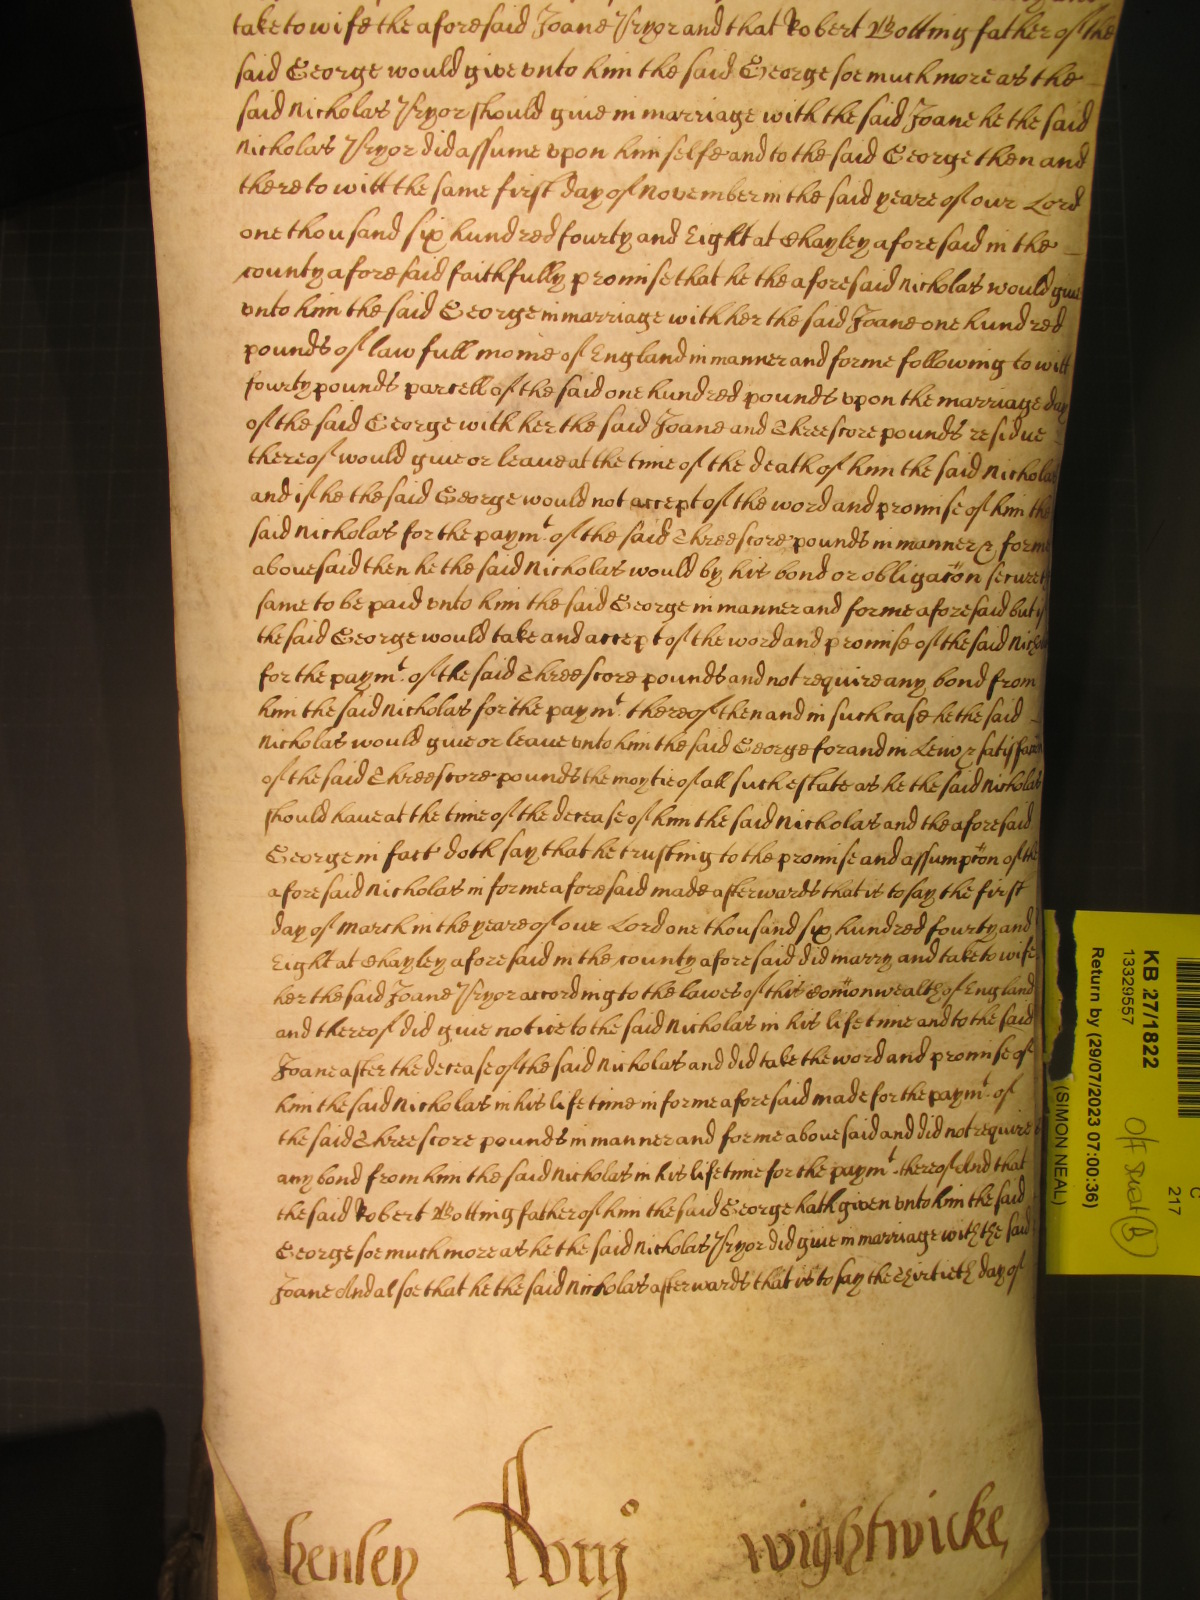 take to wife the aforesaid Joane Pryor and that Robert Botting father of the
said George would give vnto him the said George soe much more as the
said Nicholas Pryor should give in marriage with the said Joane he the said
Nicholas Pryor did assume vpon himselfe and to the said George then and
there to witt the same first day of November in the said yeare of our Lord
one thousand six hundred fourty and Eight at Chayley aforesaid in the
county aforesaid faithfully promise that he the aforesaid Nicholas would give
vnto him the said George in marriage with her the said Joane one hundred
pounds of lawfull monie of England in manner and forme following to witt
fourty pounds parcell of the said one hundred pounds vpon the marriage day
of the said George with her the said Joane and Threescore pounds residue
thereof would give or leave at the time of the death of him the said Nicholas
and if he the said George would not accept of the word and promise of him the
said Nicholas for the paymt. of the said Threescore pounds in manner & forme
abovesaid then he the said Nicholas would by his bond or obligacon secure
same to be paid vnto him the said George in manner and forme aforesaid but if
the said George would take and accept of the word and promise of the said Nicholas
for the paymt. of the said Threescore pounds and not require any bond from
him the said Nicholas for the paymt. thereof then and in such case he the said
Nicholas would give or leave vnto him the said George for and in Leiw & satisfaccon
of the said Threescore pounds the moytie of all such estate as he the said Nicholas
should have at the time of the decease of him the said Nicholas and the aforesaid
George in fact doth say that he trusting to the promise and assumpcon of the
aforesaid Nicholas in forme aforesaid made afterwards that is to say the first
day of March in the yeare of our Lord one thousand six hundred fourty and
Eight at Chayley aforesaid in the county aforesaid did marry and take to wife
her the said Joane Pryor according to the lawes of this Comonwealth of England
and thereof did give notice to the said Nicholas in his life time and to the said
Joane after the decease of the said Nicholas and did take the word and promise of
him the said Nicholas in his life time in forme aforesaid made for the paymt. of
the said Threescore pounds in manner and forme abovesaid and did not require
any bond from him the said Nicholas in his life time for the paymt. thereof And that
the said Robert Botting father of him the said George hath given vnto him the said
George soe much more as he the said Nicholas Pryor did give in marriage with the said
Joane And alsoe that he the said Nicholas afterwards that is to say the Thirtieth day of
henley Rory wightwicke
KB 27/1822
13329557
Return by (29/07/2023 07:00:36)
(SIMON NEAL)
C
2117